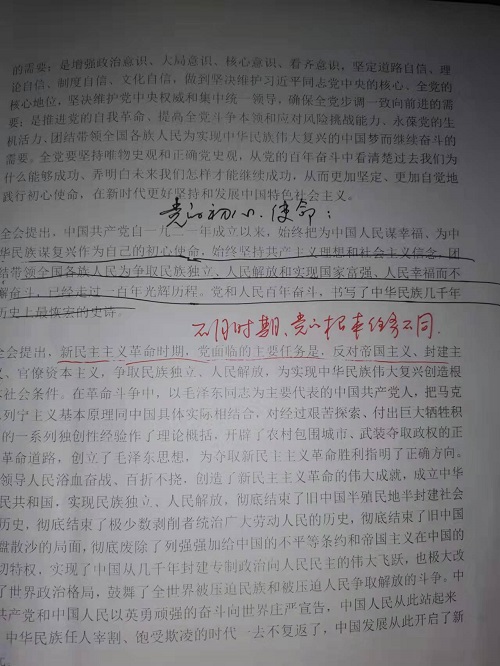 的需要；是增强政治意识、大局意识、核心意识、看齐意识，坚定道路自信、理
论自信、制度自信、文化自信，做到坚决维护习近平同志党中央的核心、全党的
核心地位，坚决维护党中央权威和集中统一领导，确保全党步调一致向前进的需
要；是推进党的自我革命、提高全党斗争本领和应对风险挑战能力、永葆党的生
机活力、团结带领全国各族人民为实现中华民族伟大复兴的中国梦而继续奋斗的
需要。全党要坚持唯物史观和正确党史观，从党的百年奋斗中看清楚过去我们为
什么能够成功、弄明白未来我们怎样才能继续成功，从而更加坚定、更加自觉地
践行初心使命，在新时代更好坚持和发展中国特色社会主义。
党的初心、使命：
全会提出，中国共产党自一九二一年成立以来，始终把为中国人民谋幸福、为中
华民族谋复兴作为自己的初心使命，始终坚持共产主义理想和社会主义信念，团
结带领全国各族人民为争取民族独立、人民解放和实现国家富强、人民幸福而不
懈奋斗，已经走过一百年光辉历程。党和人民百年奋斗，书写了中华民族几千年
历史上最恢宏的史诗。
不同时期，党的根本任务不同.
全会提出，新民主主义革命时期，党面临的主要任务是，反对帝国主义、封建主
义、官僚资本主义，争取民族独立、人民解放，为实现中华民族伟大复兴创造根
本社会条件。在革命斗争中，以毛泽东同志为主要代表的中国共产党人，把马克
思列宁主义基本原理同中国具体实际相结合，对经过艰苦探索、付出巨大牺牲积
的一系列独创性经验作了理论概括，开辟了农村包围城市、武装夺取政权的正
革命道路，创立了毛泽东思想，为夺取新民主主义革命胜利指明了正确方向。
领导人民浴血奋战、百折不挠，创造了新民主主义革命的伟大成就，成立中华
民共和国，实现民族独立、人民解放，彻底结束了旧中国半殖民地半封建社会
历史，彻底结束了极少数剥削者统治广大劳动人民的历史，彻底结束了旧中国
盘散沙的局面，彻底废除了列强强加给中国的不平等条约和帝国主义在中国
切特权，实现了中国从几千年封建专制政治向人民民主的伟大飞跃，也极大改
了世界政治格局，鼓舞了全世界被压迫民族和被压迫人民争取解放的斗争。中
共产党和中国人民以英勇顽强的奋斗向世界庄严宣告，中国人民从此站起来
中华民族任人宰割、饱受欺凌的时代一去不复返了，中国发展从此开启了新